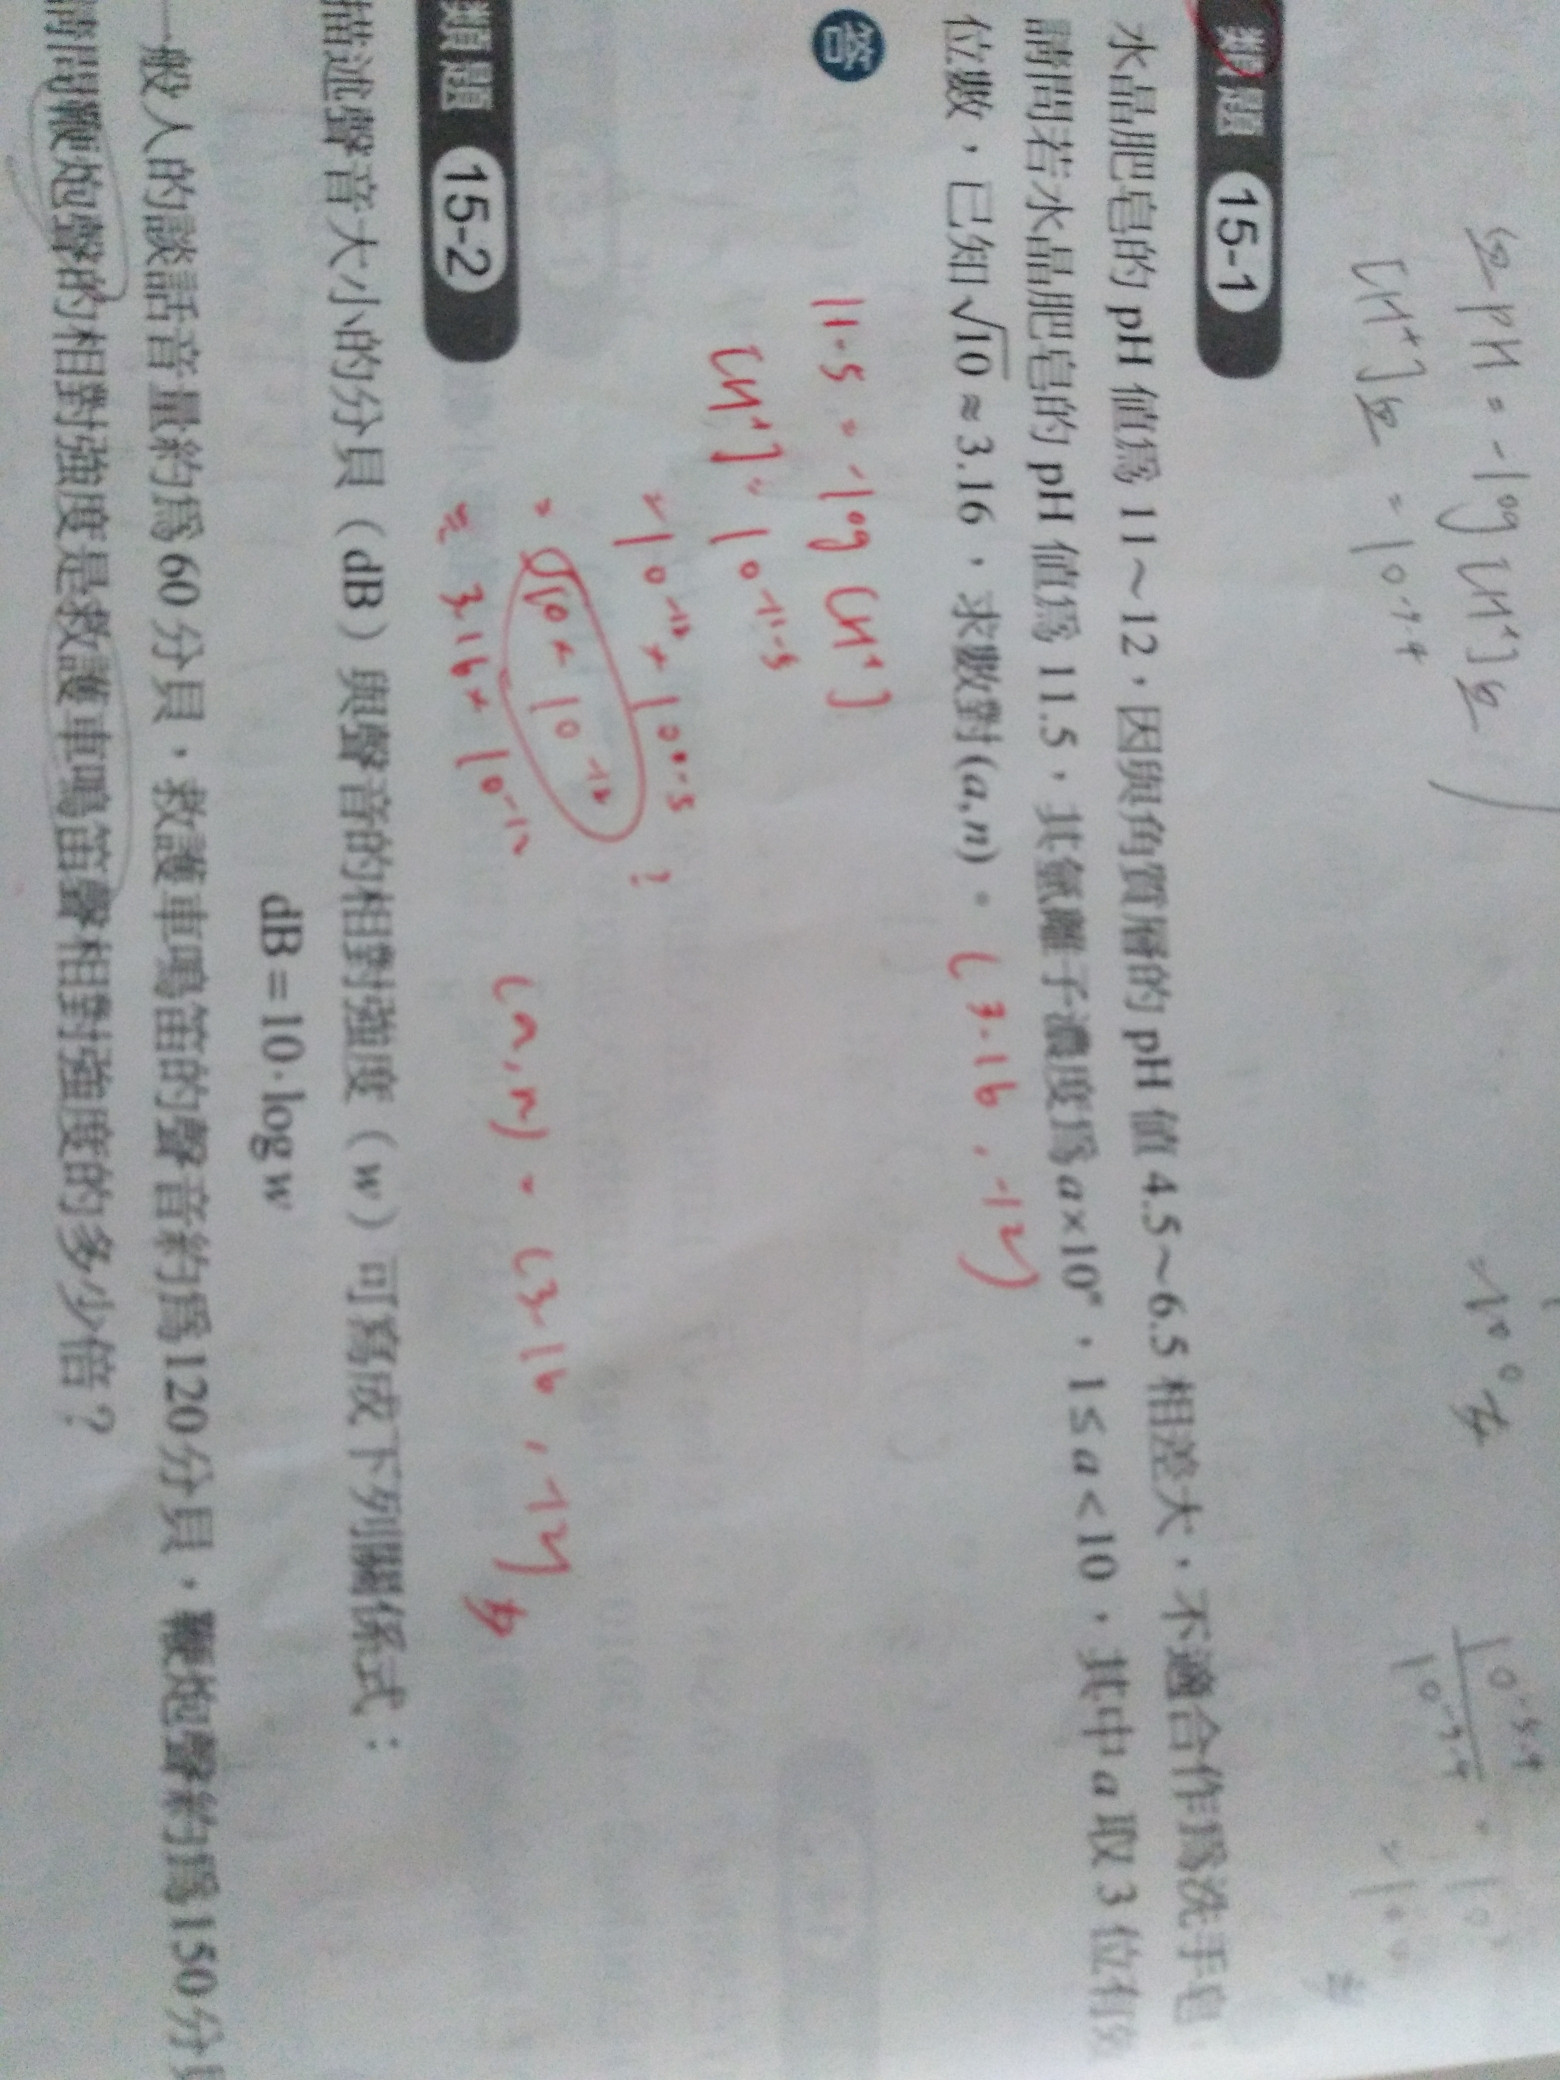 皮 pH = -log [H⁺]皮
[H⁺]皮 = 10^-7.4
= 100 #
10^-5.4 / 10^-7.4 = 10²
= 100
類題 15-1
水晶肥皂的 pH 值為 11～12，因與角質層的 pH 值 4.5～6.5 相差大，不適合作為洗手皂
請問若水晶肥皂的 pH 值為 11.5，其氫離子濃度為 a×10ⁿ，1≤a<10，其中 a 取 3 位有效
位數，已知√10≈3.16，求數對(a,n)。 (3.16, -12)
答
11.5 = -log [H⁺]
[H⁺] = 10^-11.5
= 10^-12 × 10^0.5 ?
= √10 × 10^-12
≒ 3.16 × 10^-12
(a, n) = (3.16, -12) #
類題 15-2
描述聲音大小的分貝（dB）與聲音的相對強度（w）可寫成下列關係式：
dB=10·log w
一般人的談話音量約為 60 分貝，救護車鳴笛的聲音約為120分貝，鞭炮聲約為150分貝
請問鞭炮聲的相對強度是救護車鳴笛聲相對強度的多少倍？